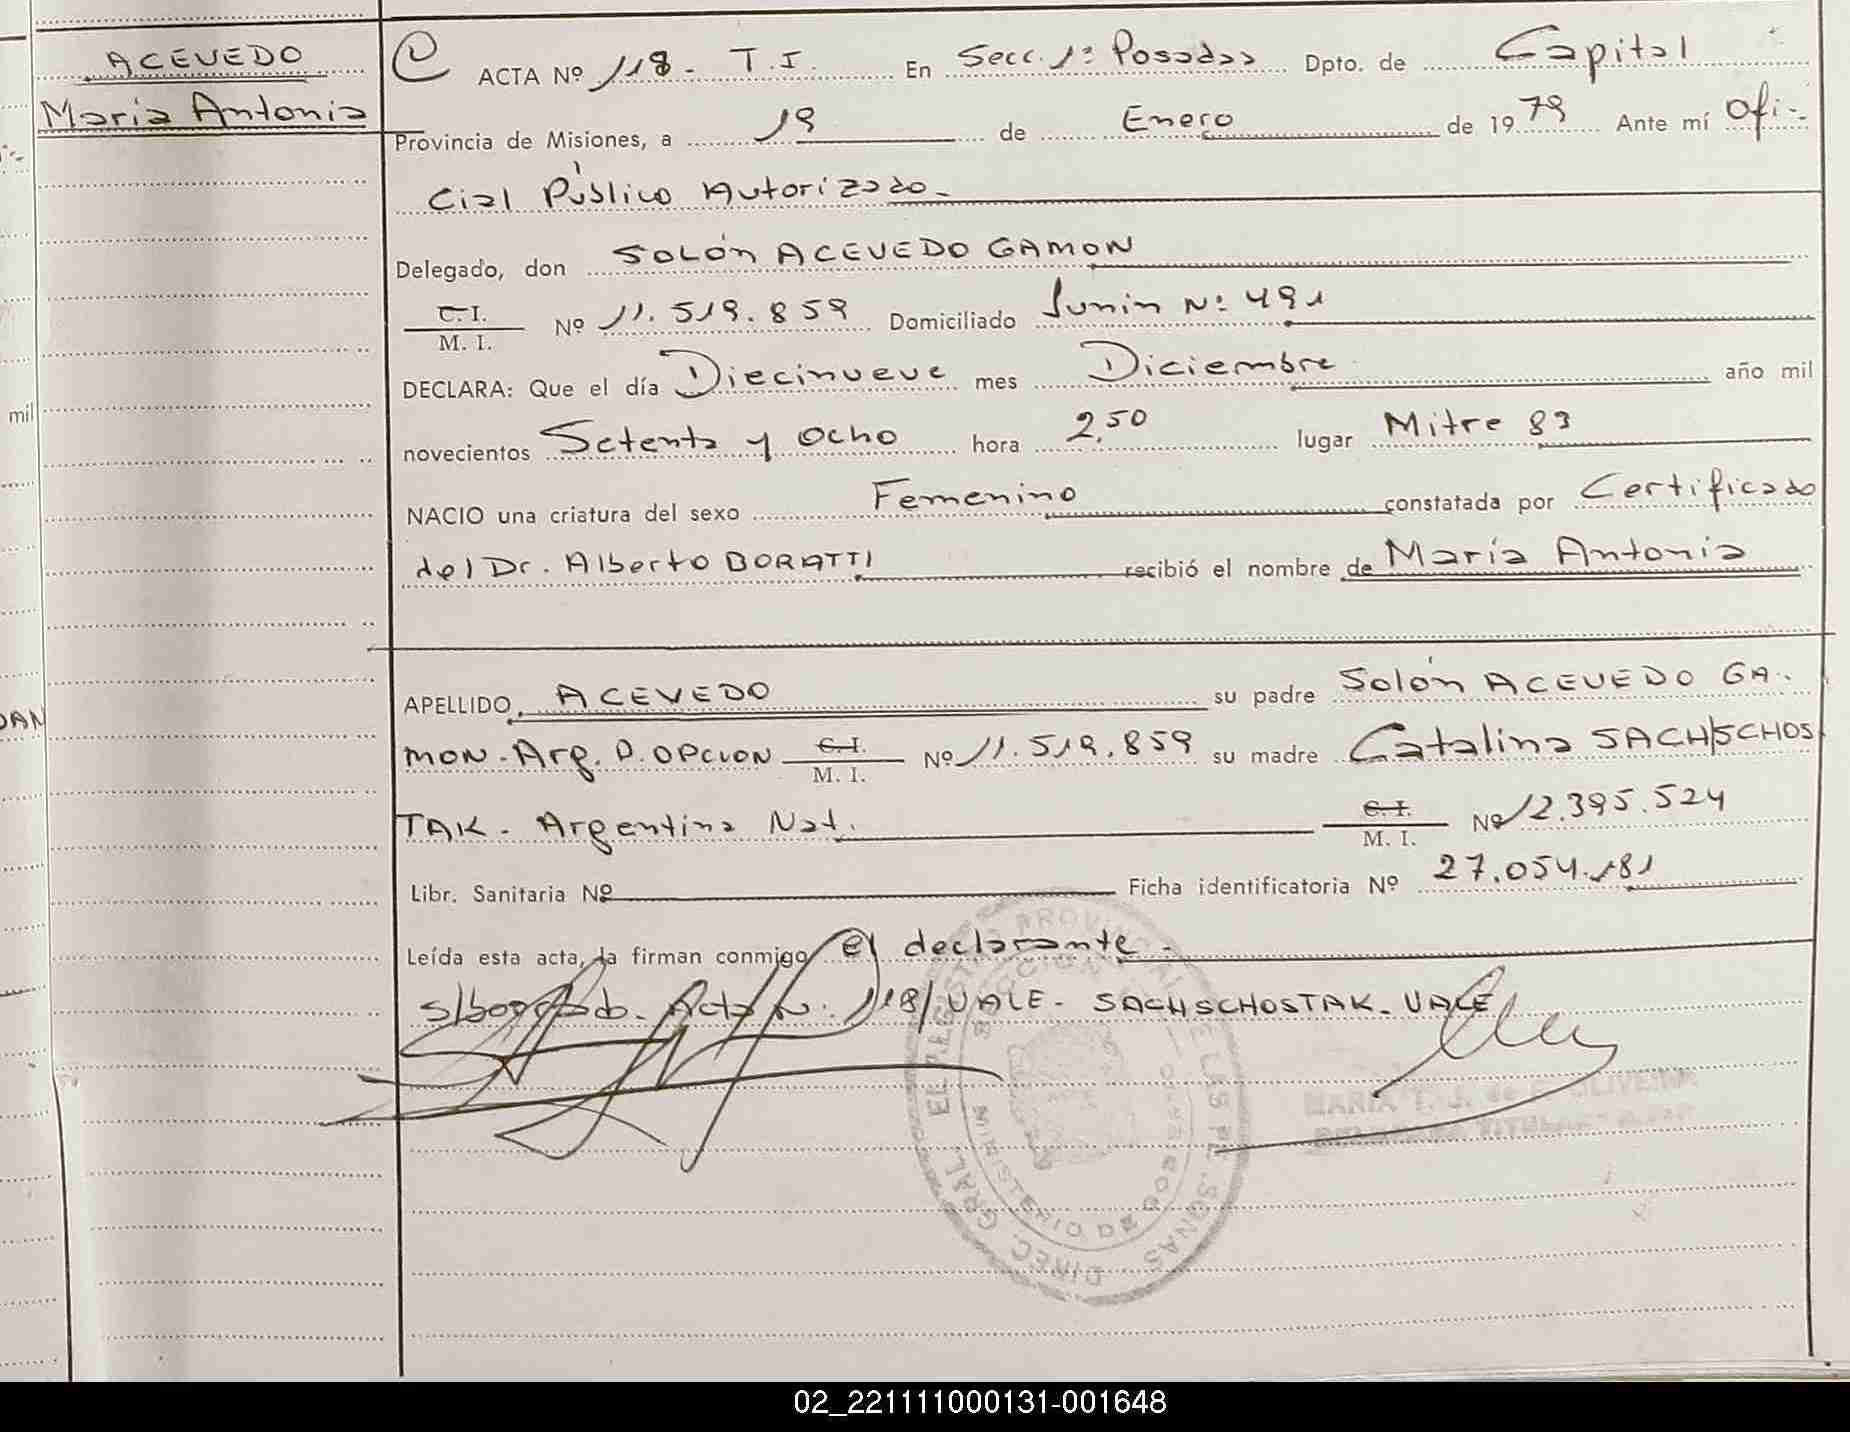 ACEVEDO
María Antonia
mil
DAN
ACTA Nº 118. T.I. En Secc. 1ª Posadas Dpto. de Capital
Provincia de Misiones, a 19 de Enero de 1979 Ante mí Ofi-
cial Público Autorizado.
Delegado, don SOLÓN ACEVEDO GAMON
C.I. / M. I. Nº 11.519.859 Domiciliado Junin Nº 491
DECLARA: Que el día Diecinueve mes Diciembre año mil
novecientos Setenta y Ocho hora 2,50 lugar Mitre 83
NACIO una criatura del sexo Femenino constatada por Certificado
del Dr. Alberto BORATTI recibió el nombre de María Antonia
APELLIDO, ACEVEDO su padre Solón ACEVEDO GA-
MON. Arg. P. OPCION C.I. / M. I. Nº 11.519.859 su madre Catalina SACH/SCHOS
TAK. Argentina Nat. C.I. / M. I. Nº 12.395.524
Libr. Sanitaria Nº Ficha identificatoria Nº 27.054.181
Leída esta acta, la firman conmigo el declarante.
s/borrado. Acta N. 118/ VALE. SACHSCHOSTAK. VALE
DIREC. GRAL. EL REGISTRO PROVINCIAL DE LAS PERSONAS
MINISTERIO DE GOBIERNO
MARIA T. J. de OLIVEIRA
02_221111000131-001648